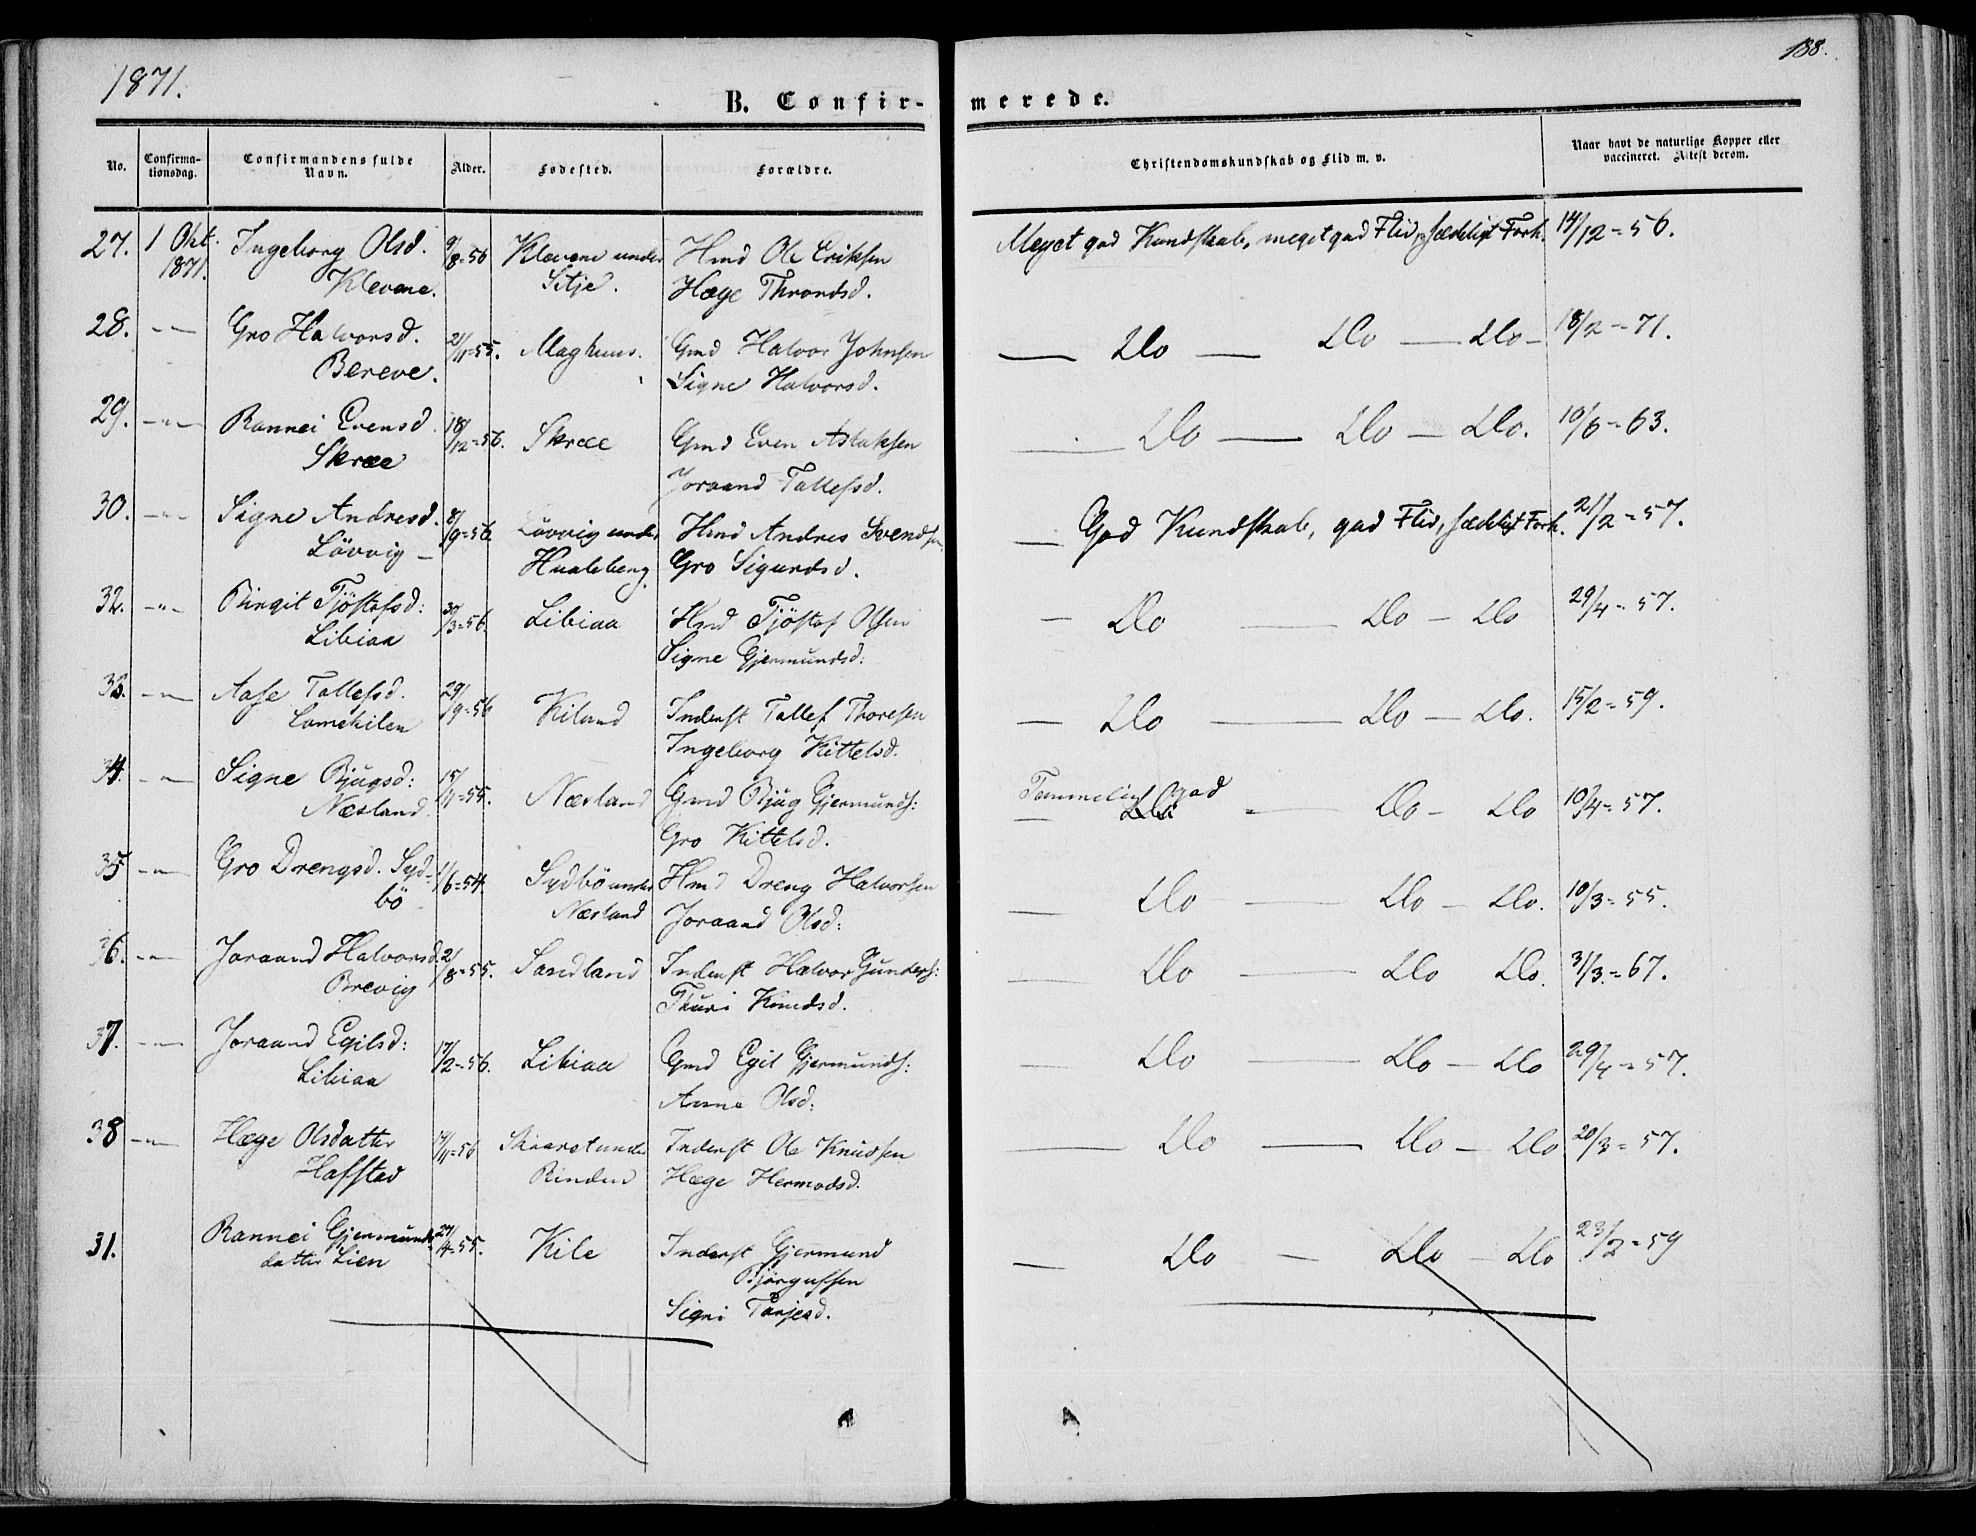 1871.
188.
B. Confir-
merede.
No.
Confirma-
tionsdag.
Confirmandens fulde
Navn.
Alder.
Fødested.
Forældre.
Christendomskundskab og Flid m. v.
Naar havt de naturlige Kopper eller
vaccineret. Attest derom.
27. 1 Okt. Ingeborg Olsd. 9/8=56 Klevene under Hmd Ole Eriksen Meget god Kundskab, meget god Flid, sædeligt Forh. 14/12=56.
1871. Klevene. Sitje. Hæge Throndsd.
28. -"- Gro Halvorsd. 21/11=55. Maghuus. Gmd Halvor Johnsen Do Do Do 18/2=71.
Bereve. Signe Halvorsd.
29. -"- Rannei Evensd. 18/12=56. Skree Gmd Even Aslaksen Do Do Do. 10/6=63.
Skree Joraand Tallefsd.
30. -"- Signe Andresd. 8/9=56 Lövvig under Hmd Andres Svendsen God Kundskab, god Flid, sædeligt Forh. 21/2=57.
Lövvig Gro Sigurdsd.
32. -"- Birgit Tjöstofsd: 30/3=56. Libiaa Hmd Tjöstof Olsen Do Do Do 29/4=57.
Libiaa Signe Gjermundsd:
33. -"- Aase Tallefsd. 29/9=56 Kiland Inderst Tallef Thoresen Do Do Do. 15/2=59.
Ingeborg Kittelsd.
34. -"- Signe Bjugsd: 15/11=55. Næsland Gmd Bjug Gjermunds: Temmelig god Do Do 10/4=57.
Næsland. Gro Kittelsd.
35 -"- Gro Drengsd. Syd- 1/6=54. Sydbö under Hmd Dreng Halvorsen Do Do Do. 10/3=55.
bö Næsland Joraand Olsd:
36. -"- Joraand Halvorsd. 2/8=55. Sandland Inderst Halvor Gunders: Do Do Do. 31/3=67.
Brevig Thuri Knudsd.
37. -"- Joraand Egilsd: 17/2=56. Libiaa Gmd Egil Gjermunds: Do Do Do 29/4=57.
Libiaa Anne Olsd:
38 -"- Hæge Olsdatter 14/11=56 under Inderst Ole Knudsen Do Do Do 20/3=57.
Hafstad Rinden Hæge Hermodsd.
31. Rannei Gjermunds 27/4=55. Kile Inderst Gjermund Do Do Do 23/2=59
datter Lien Bjørgufsen
Signi Tarjesd.